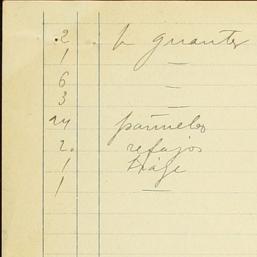 2 p guantes
1 —
6 —
3 —
24 pañuelos
2 refajos
1 traje
1 —